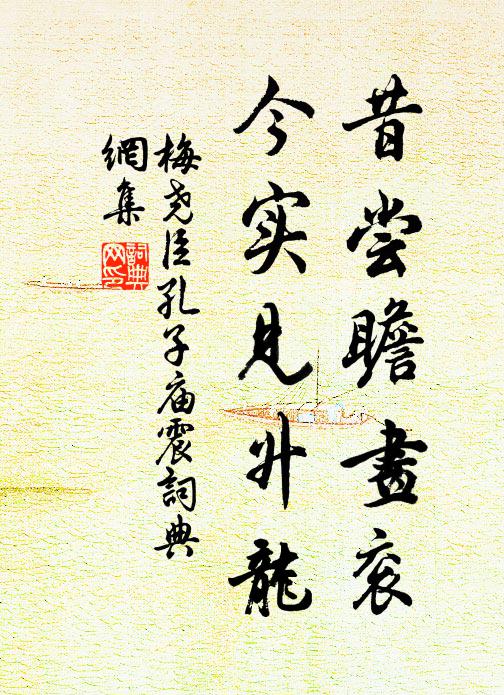 昔尝瞻畫衮
今实见升龍
梅尧臣孔子庙震詞典
網集
詞典网印